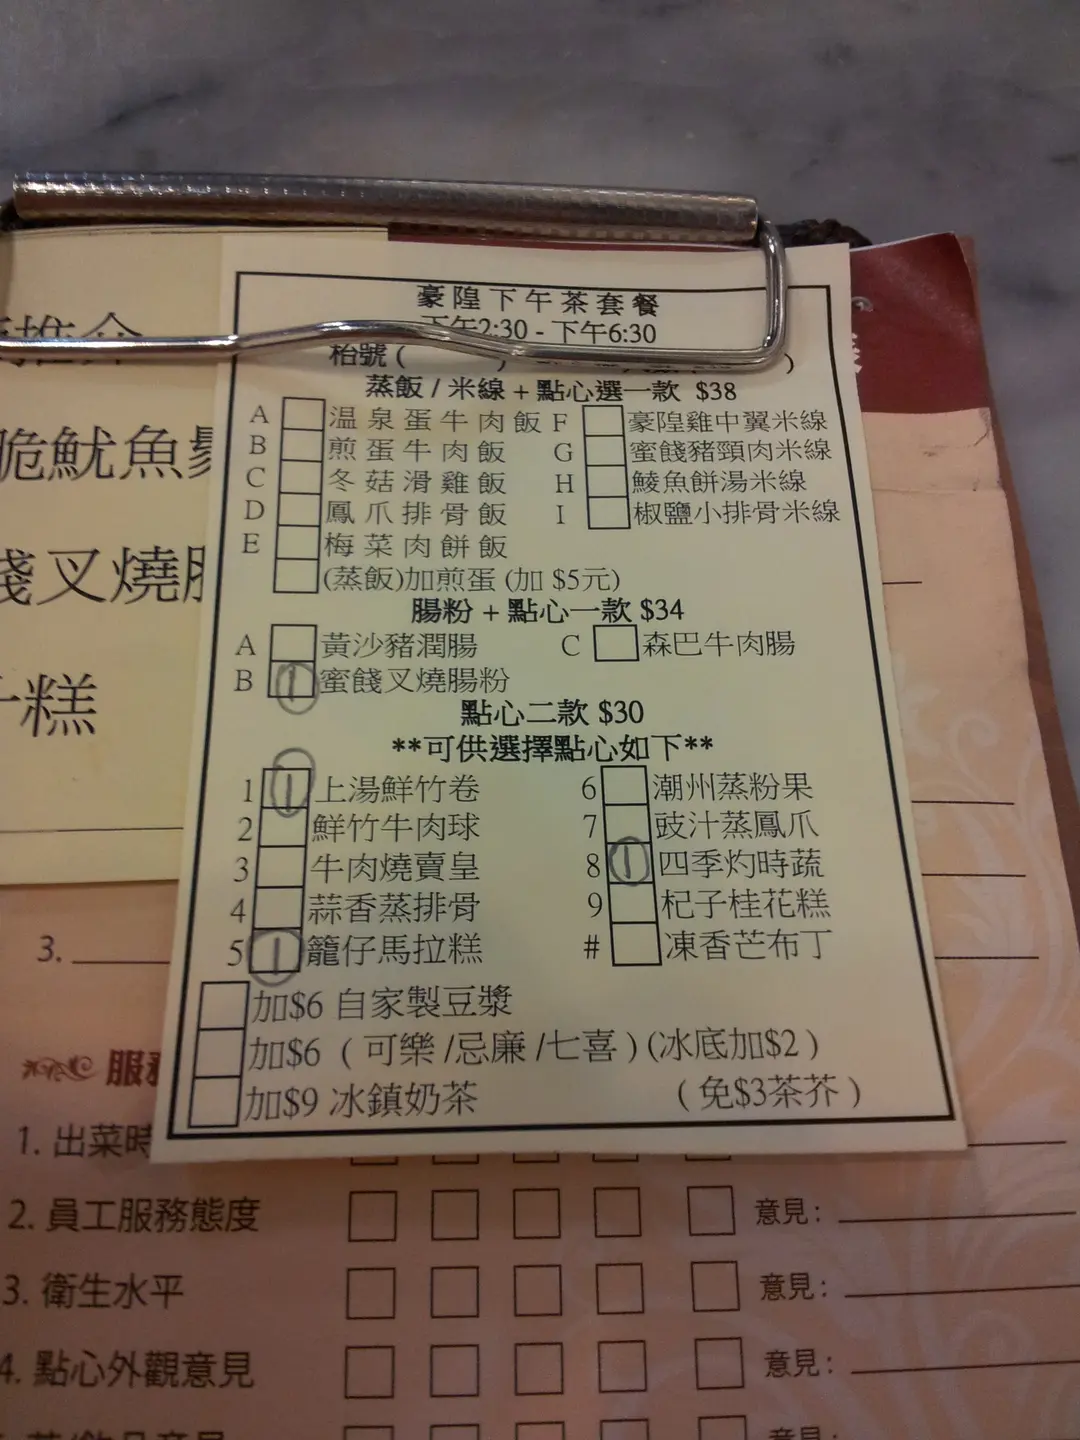 豪隍下午茶套餐
下午2:30 - 下午6:30
枱號 ( ) )
蒸飯 / 米線 + 點心選一款 $38
A 温泉蛋牛肉飯 F 豪隍雞中翼米線
B 煎蛋牛肉飯 G 蜜餞豬頸肉米線
C 冬菇滑雞飯 H 鯪魚餅湯米線
D 鳳爪排骨飯 I 椒鹽小排骨米線
E 梅菜肉餅飯
(蒸飯)加煎蛋 (加 $5元)
腸粉 + 點心一款 $34
A 黃沙豬潤腸 C 森巴牛肉腸
B 1 蜜餞叉燒腸粉
點心二款 $30
**可供選擇點心如下**
1 1 上湯鮮竹卷 6 潮州蒸粉果
2 鮮竹牛肉球 7 豉汁蒸鳳爪
3 牛肉燒賣皇 8 1 四季灼時蔬
4 蒜香蒸排骨 9 杞子桂花糕
5 1 籠仔馬拉糕 # 凍香芒布丁
加$6 自家製豆漿
加$6 ( 可樂 /忌廉 /七喜 ) (冰底加$2 )
加$9 冰鎮奶茶 ( 免$3茶芥 )
推介
脆魷魚鬚
餞叉燒腸
糕
3.
服務
1. 出菜時
2. 員工服務態度 意見:
3. 衛生水平 意見:
4. 點心外觀意見 意見:
意見: